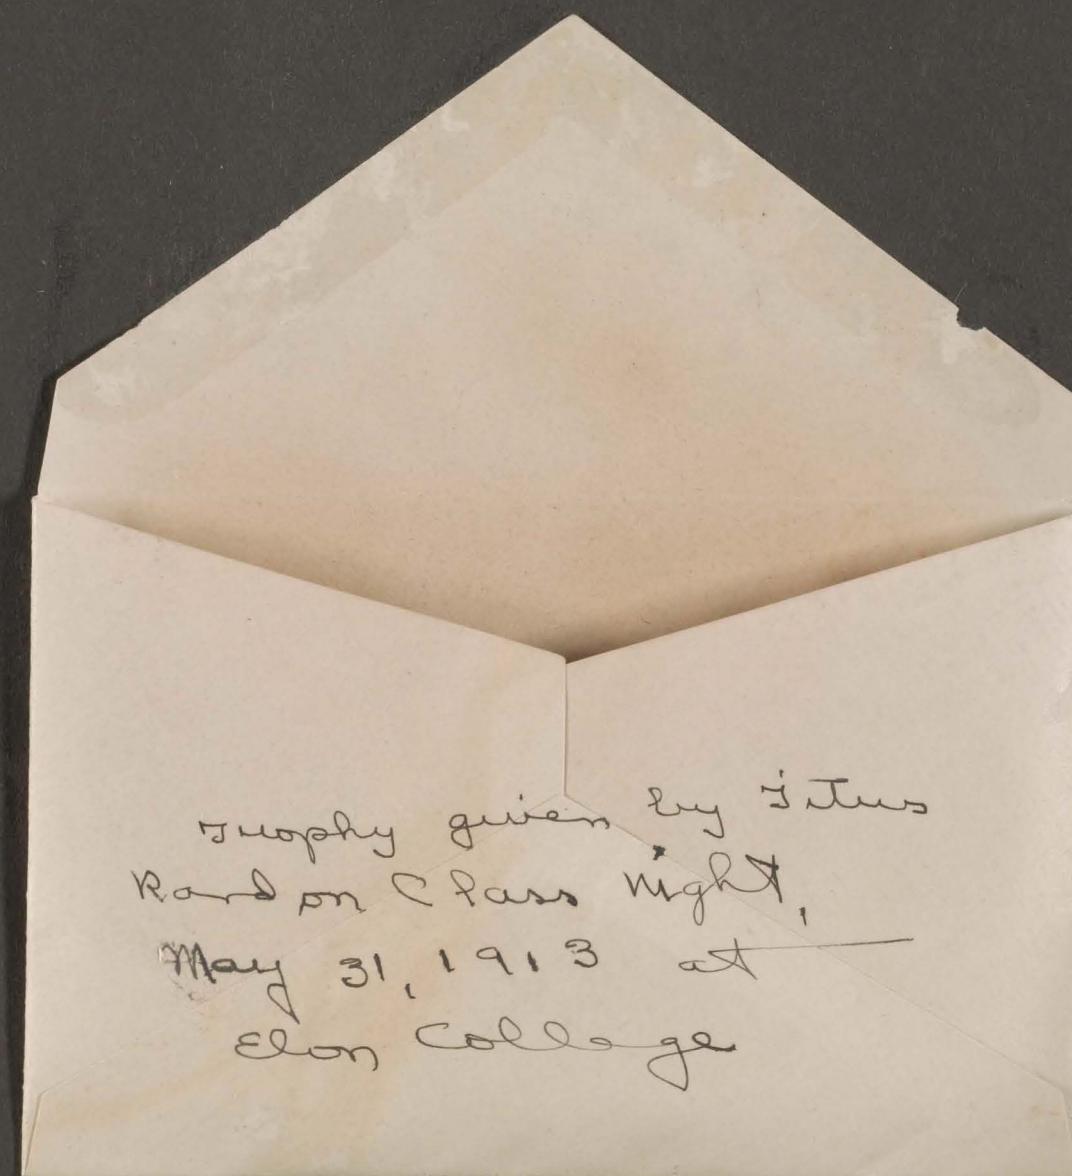 Trophy given by Titus
Rand on Class Night,
May 31, 1913 at
Elon College